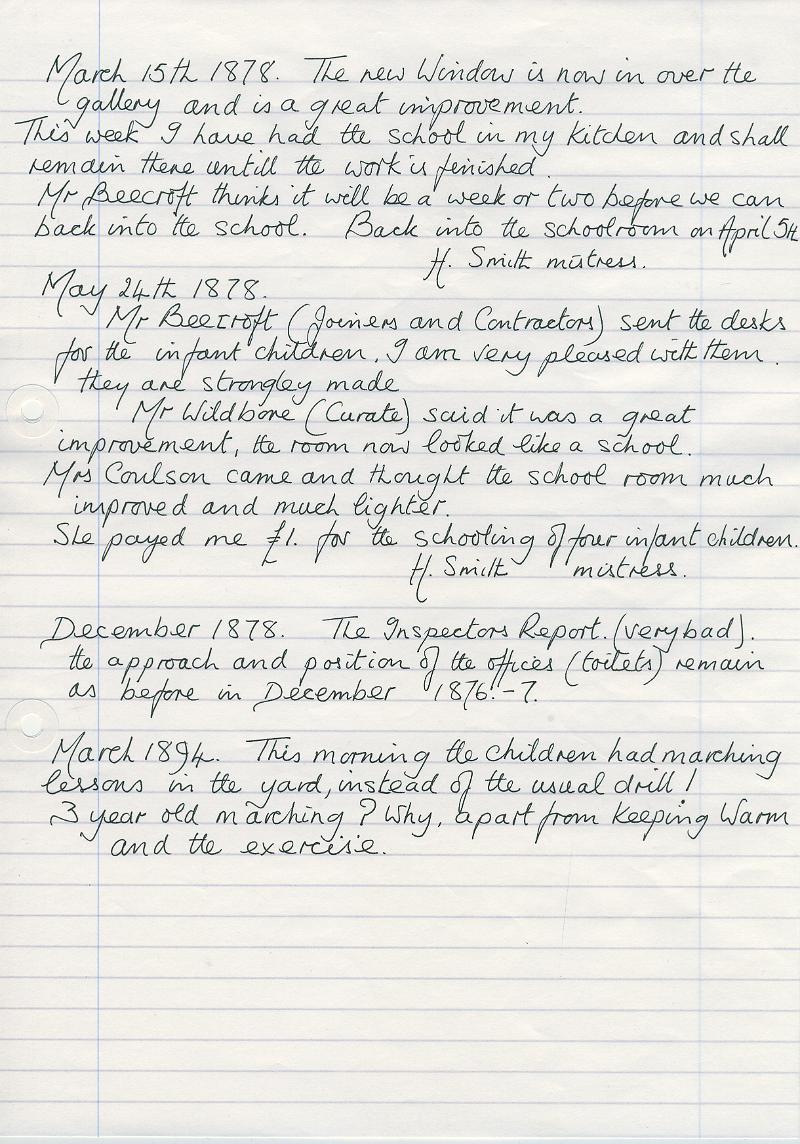 March 15th 1878. The new Window is now in over the
gallery and is a great improvement.
This week I have had the school in my kitchen and shall
remain there untill the work is finished.
Mr Beecroft thinks it will be a week or two before we can
back into the school. Back into the schoolroom on April 5th
H. Smith mistress.
May 24th 1878.
Mr Beecroft (Joiners and Contractors) sent the desks
for the infant children. I am very pleased with them.
they are strongley made
Mr Wildbore (Curate) said it was a great
improvement, the room now looked like a school.
Mrs Coulson came and thought the school room much
improved and much lighter.
She payed me £1. for the schooling of four infant children.
H. Smith mistress.
December 1878. The Inspectors Report. (very bad).
the approach and position of the offices (toilets) remain
as before in December 1876.-7.
March 1894. This morning the children had marching
lessons in the yard, instead of the usual drill!
3 year old marching? Why, apart from keeping Warm
and the exercise.